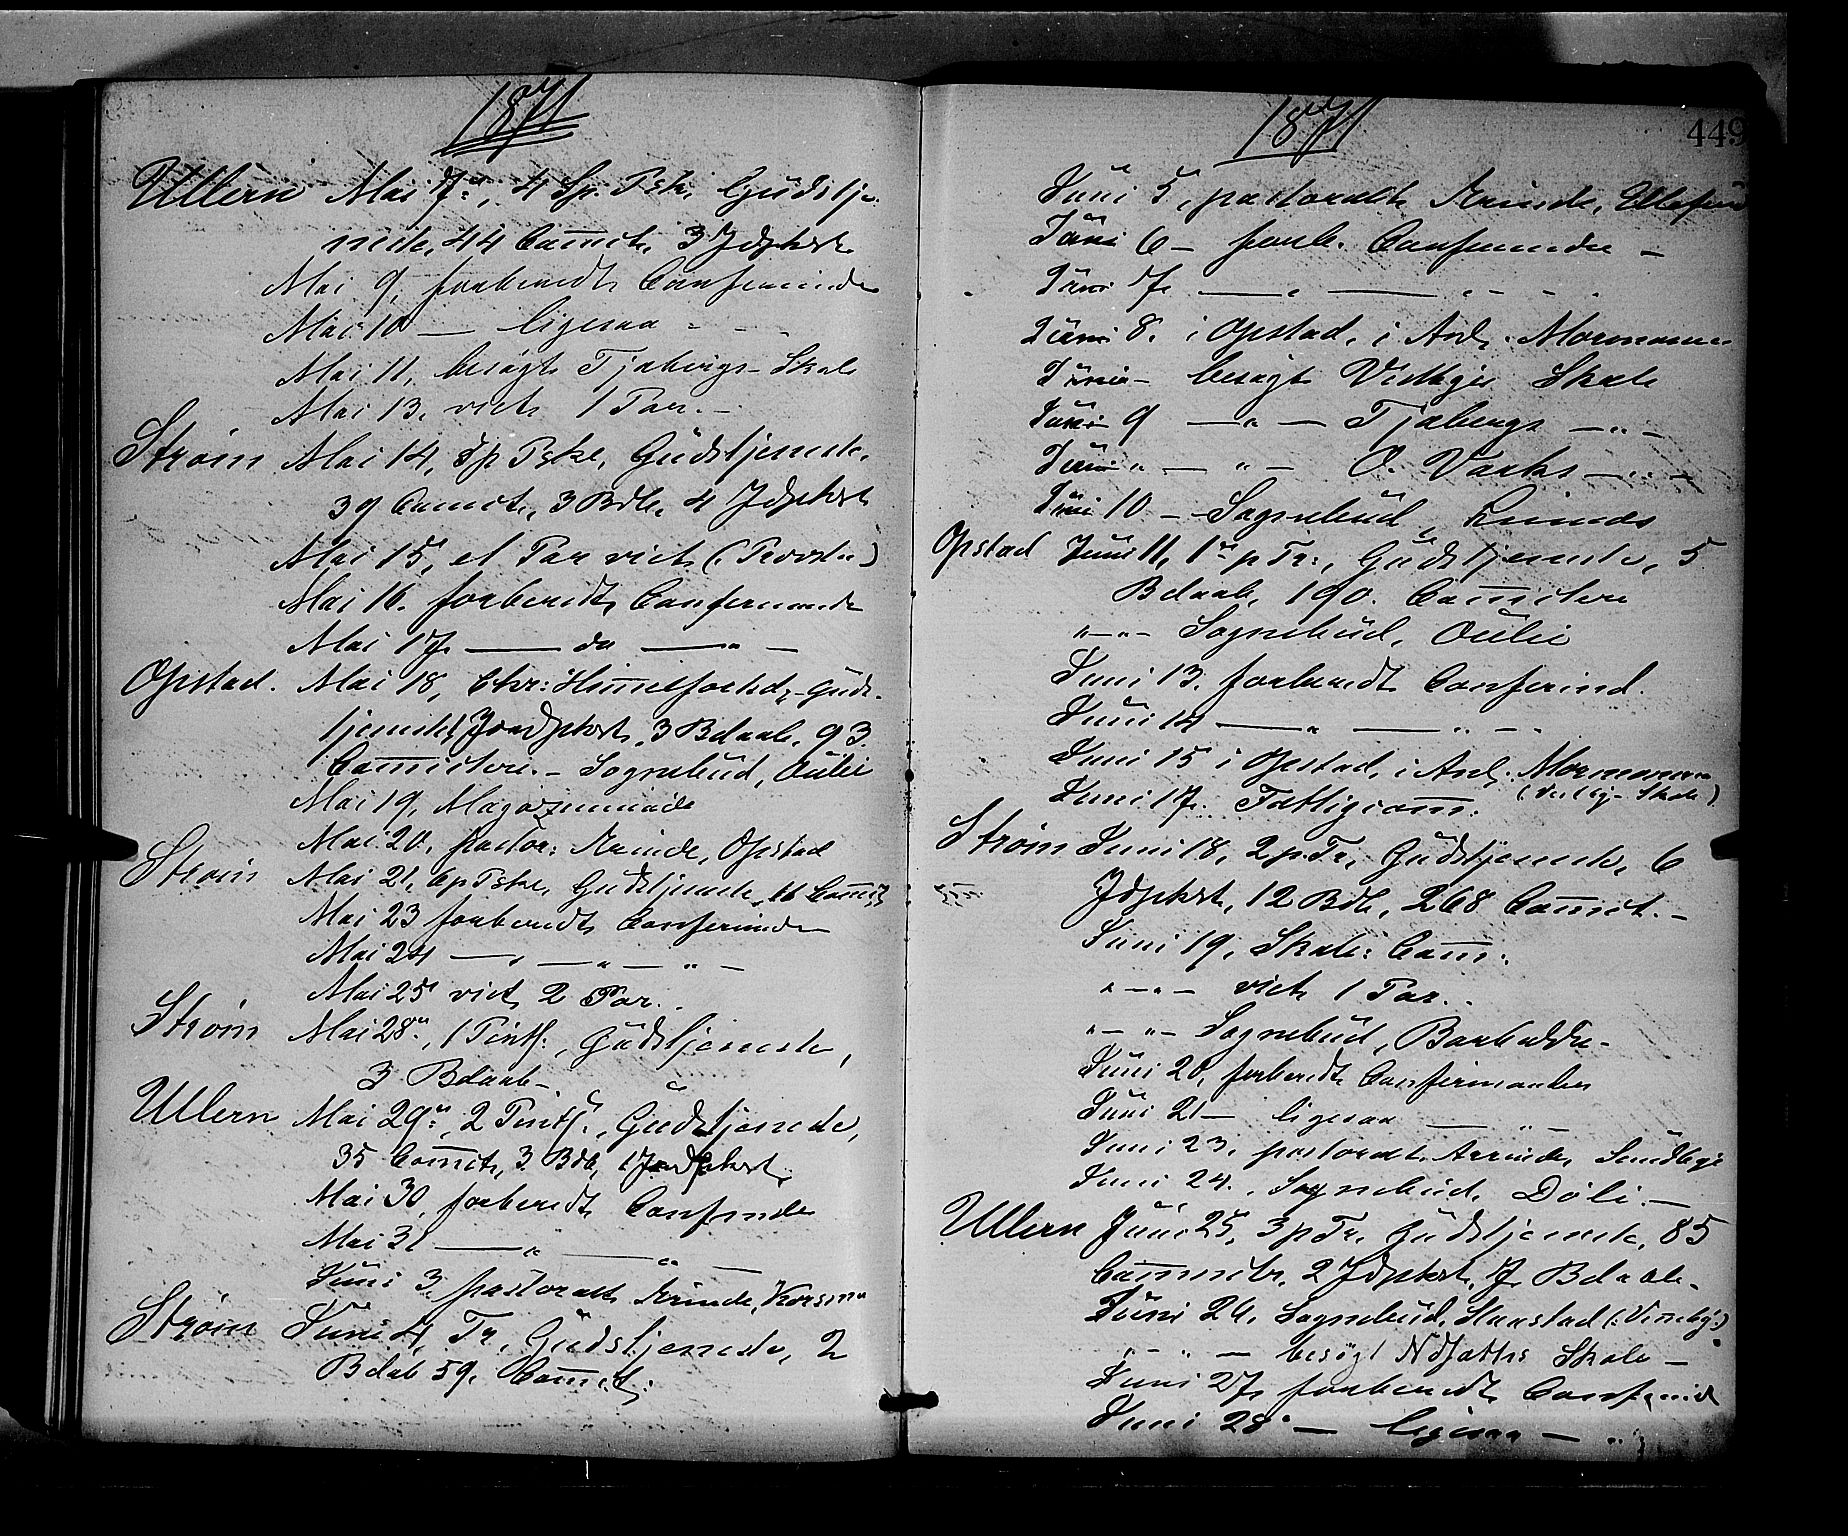 1871
Ullern Mai 7de, 4 Sp. Pske, Gudstje-
neste, 44 Com̄ct, 3 Jdpkst
Mai 9, forberedt Confirmander
Mai 10 — ligesaa - - -
Mai 11, besøgt Tjabergs Skole
Mai 13, viet 1 Par. -
Strøm Mai 14, 5 p Pske, Gudstjeneste,
39 Com̄ct, 3 Bdb, 4 Jdpkst
Mai 15, et Par viet
Mai 16. forberedt Confirmander
Mai 17 — do — " —
Opstad. Mai 18, Chr: Him̄elfartsd, Guds-
tjeneste, Jndpkst, 3 Bdaab, 93
Com̄uctere. - Sognebud, Oulie
Mai 19, Magazinmøde
Mai 20, pastor: Ærinde, Opstad
Strøm Mai 21, 6 p Pske, Gudstjeneste, 16 Com̄ct
Mai 23 forberedt Confirmander
Mai 24 — " — " —
Mai 25 viet 2 Par.
Strøm Mai 28de, 1 Pintsd., Gudstjeneste,
3 Bdaab -
Ullern Mai 29de, 2 Pintsd., Gudstjeneste,
35 Com̄ct, 3 Bdb, 1 Jndpkst.
Mai 30, forberedt Confirmander
Mai 31 — " — " —
Juni 3, pastoralt Ærinde, Korsmo
Strøm Juni 4, Tr, Gudstjeneste, 2
Bdab 59, Com̄ct.
1871
449
Juni 5, pastoralt Ærinde,
Juni 6 - forb. Confirmander -
Juni 7 — " — " - -
Juni 8. i Opstad, i Anl. Mormonerne
Juni - besøgt Vestbye Skole
Juni 9 — " — Tjabergs — " —
Juni " — " — O. Varks — " —
Juni 10 - Sognebud,
Opstad Juni 11, 1ste p Tr:, Gudstjeneste, 5
Bdaab, 190. Com̄uctere
" - " - Sognebud, Oulie
Juni 13. forberedt Confirmand.
Juni 14 — " — " - -
Juni 15 i Opstad, i Anl. Mormonerne
(Vestby- Skole)
Juni 17. Fattigcom̄.
Strøm Juni 18, 2 p Tr, Gudstjeneste, 6
Jdpkst, 12 Bdb, 268 Com̄ct. -
Juni 19, Skole: Com̄.
" - " - viet 1 Par. -
" - " - Sognebud,
Juni 20, forberedt Confirmander
Juni 21 - ligesaa — " —
Juni 23, pastoralt Ærinde, Sundbye
Juni 24., Sognebud, Döli. -
Ullern Juni 25, 3 p Tr, Gudstjeneste, 85
Com̄uctr, 2 Jdpkst, 7 Bdaab -
Juni 26, Sognebud, Harstad (:Vineby:)
" - " - besøgt Skole -
Juni 27, forberedt Confirmand
Juni 28 - ligesaa - "